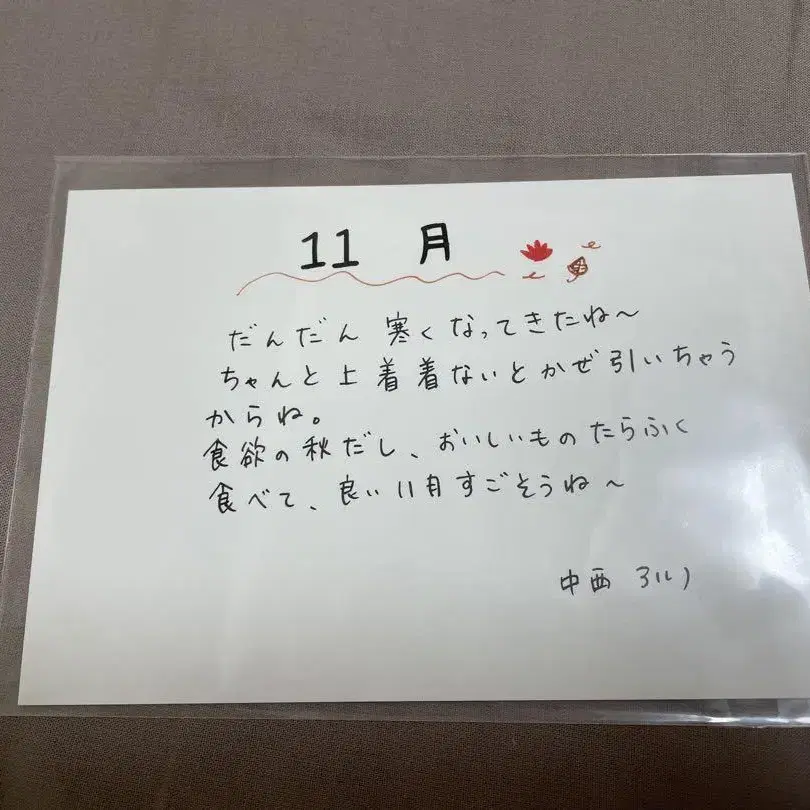 11月
だんだん寒くなってきたね〜
ちゃんと上着着ないとかぜ引いちゃう
からね。
食欲の秋だし、おいしいものたらふく
食べて、良い11月すごそうね〜
中西アルノ